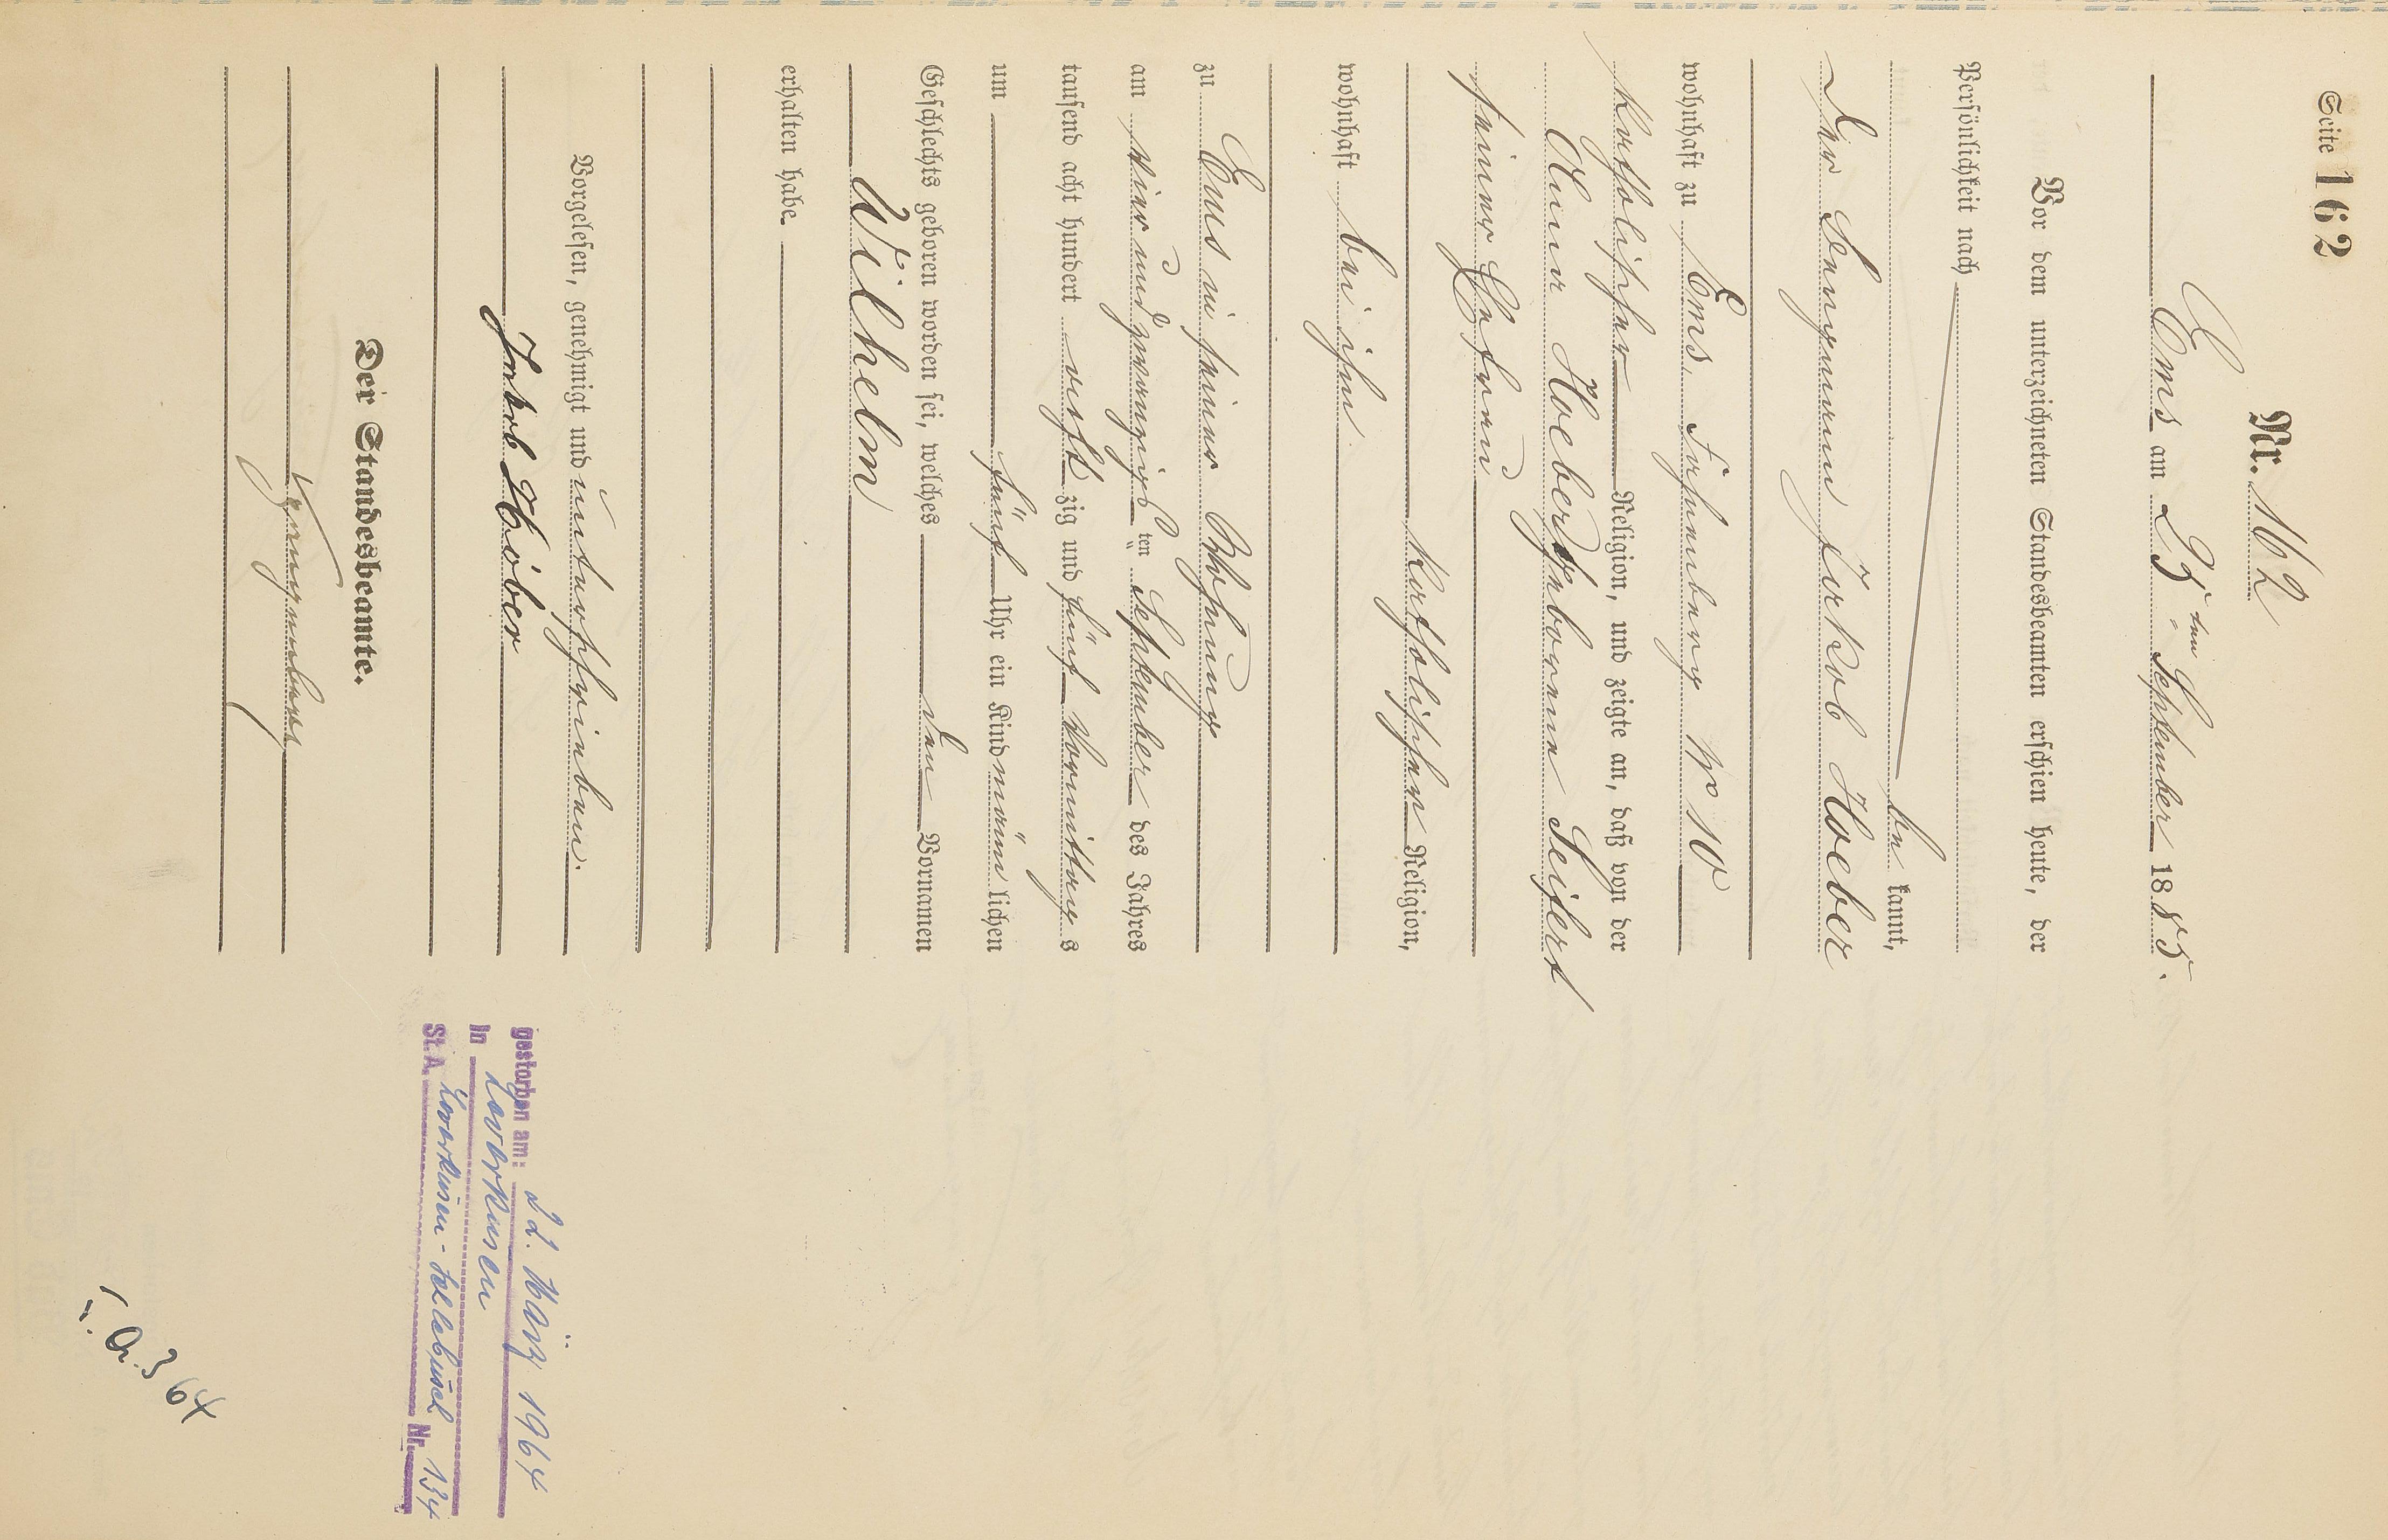 Seite 162
Nr. 162
Ems am 25ten September 1885.
Vor dem unterzeichneten Standesbeamten erschien heute, der
Persönlichkeit nach
be kannt,
Der Bergmann Jakob Hoeber
wohnhaft zu Ems, Fahnenberg No 10
katholischer Religion, und zeigte an, daß von der
Hoeber geborene Seifert
seiner Ehefrau
katholischer Religion,
wohnhaft bei ihm
zu Ems in seiner Wohnung
am vier und zwanzigsten September des Jahres
tausend acht hundert acht zig und fünf Vormittags
um fünf Uhr ein Kind männlichen
Geschlechts geboren worden sei, welches den Vornamen
Wilhelm
erhalten habe.
Vorgelesen, genehmigt und unterschrieben.
Jakob Höber
Der Standesbeamte.
gestorben am: 22. März 1964
in Leverkusen
St. A. Leverkusen - Schlebusch Nr. 134